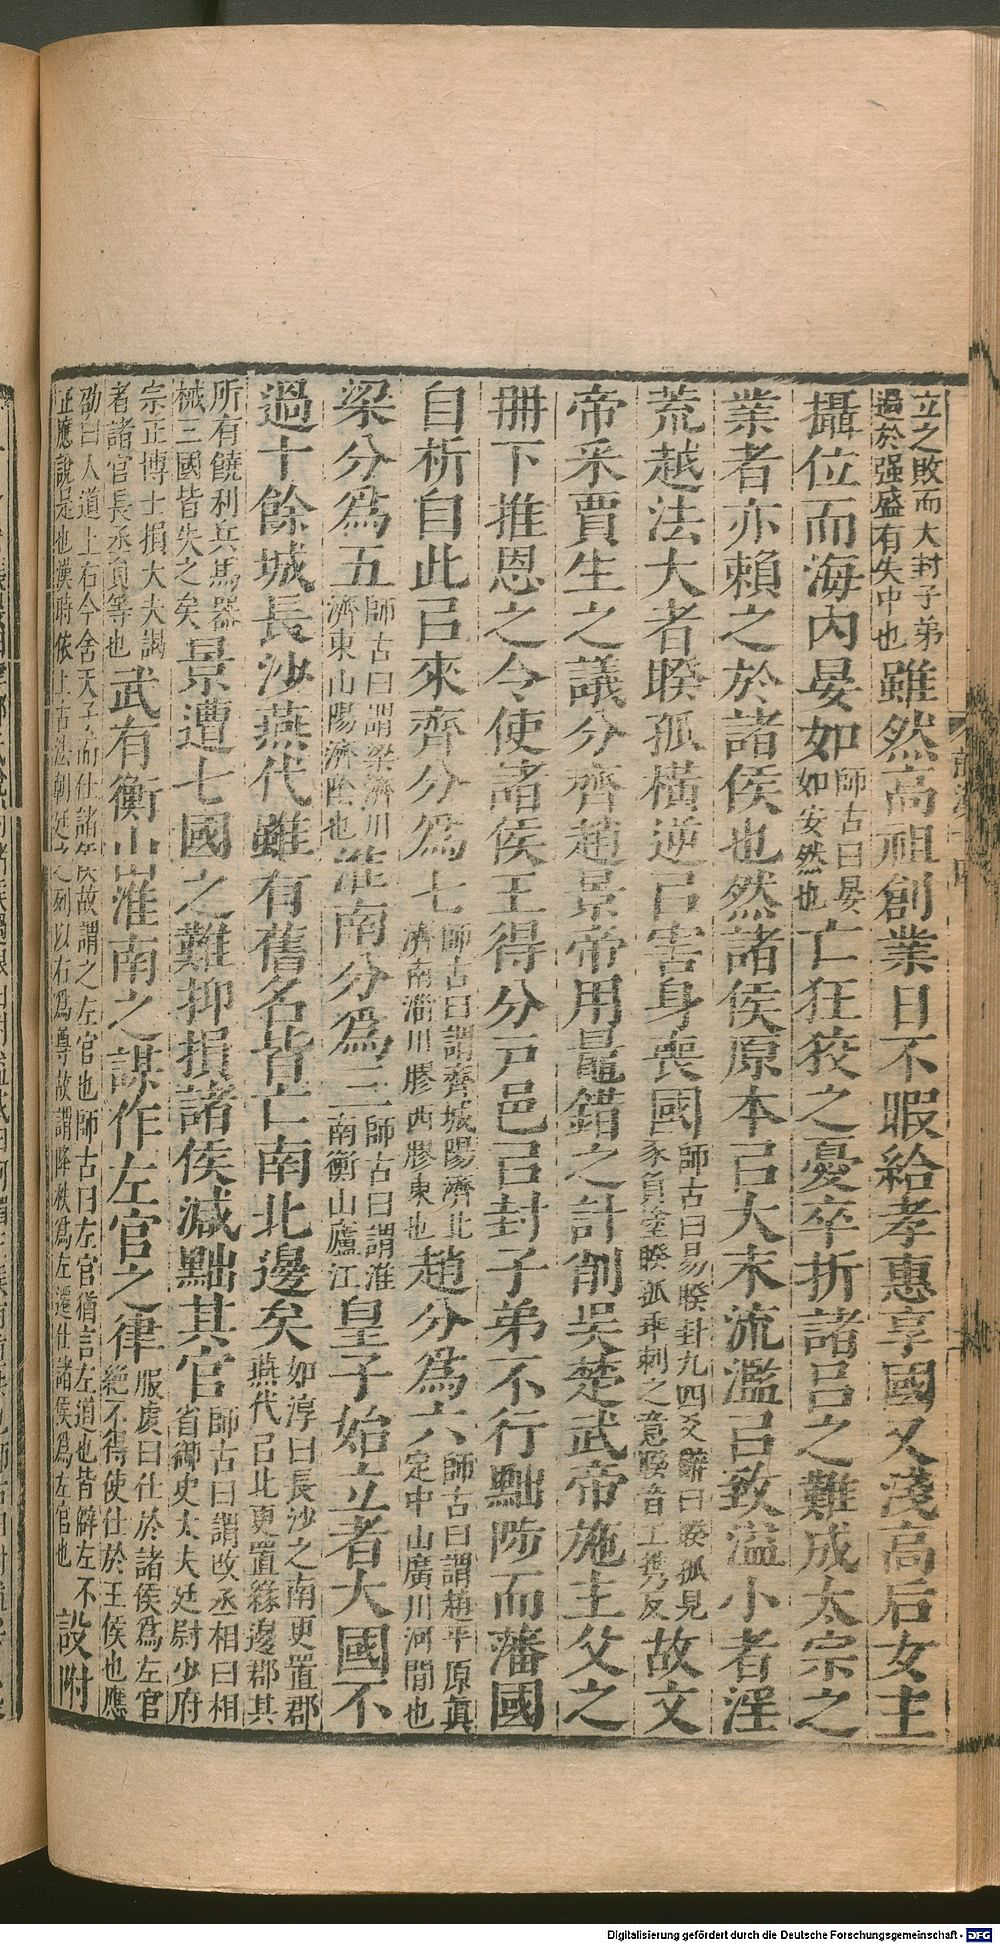 立之敗而大封子弟
過於强盛有失中也
雖然高祖創業日不暇給孝惠享國又淺高后女主
攝位而海内晏如
師古曰晏
如安然也
亡狂狡之憂卒折諸吕之難成太宗之
業者亦賴之於諸侯也然諸侯原本㠯大末流濫㠯致溢小者淫
荒越法大者睽孤橫逆㠯害身喪國
師古曰易睽卦九四爻辭曰睽孤見
豕負塗睽孤乖剌之意睽音工攜反
故文
帝采賈生之議分齊趙景帝用鼂錯之計削吳楚武帝施主父之
冊下推恩之令使諸侯王得分戸邑㠯封子弟不行黜陟而藩國
自析自此㠯來齊分爲七
師古曰謂齊城陽濟北
濟南淄川膠西膠東也
趙分爲六
師古曰謂趙平原真
定中山廣川河間也
梁分爲五
師古曰謂梁濟川
濟東山陽濟陰也
淮南分爲三
師古曰謂淮
南衡山廬江
皇子始立者大國不
過十餘城長沙燕代雖有舊名皆亡南北邊矣
如淳曰長沙之南更置郡
燕代㠯北更置緣邊郡其
所有饒利兵馬器
械三國皆失之矣
景遭七國之難抑損諸侯減黜其官
師古曰謂改丞相曰相
省御史大夫廷尉少府
宗正博士損大夫謁
者諸官長丞員等也
武有衡山淮南之謀作左官之律
服虔曰仕於諸侯爲左官
絶不得使仕於王侯也應
劭曰人道上右今舍天子而仕諸侯故謂之左官也師古曰左官猶言左道也皆僻左不
正應說是也漢時依上古法朝廷之列以右爲尊故謂降秩爲左遷仕諸侯爲左官也
設附
Digitalisierung gefördert durch die Deutsche Forschungsgemeinschaft - DFG